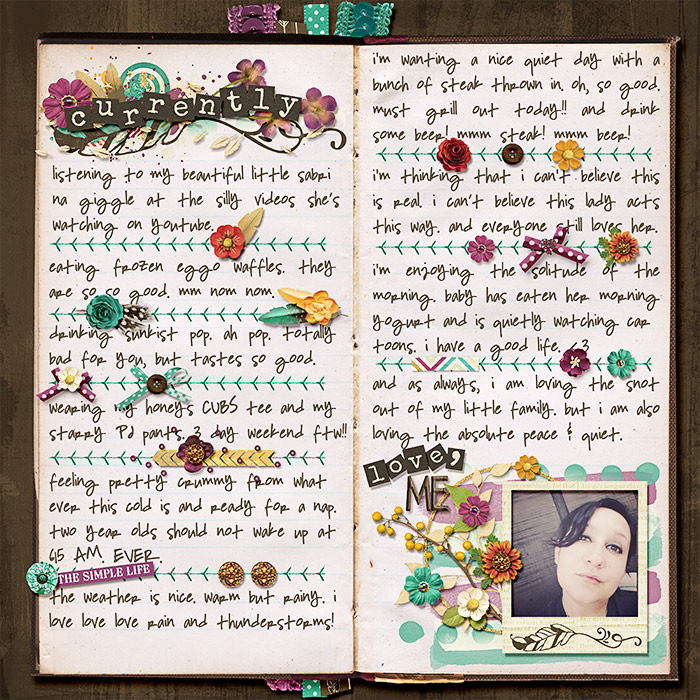 currently
listening to my beautiful little sabri
na giggle at the silly videos she's
watching on youtube.
eating frozen eggo waffles. they
are so so good. mm nom nom.
drinking sunkist pop. ah pop. totally
bad for you, but tastes so good.
wearing my honeys CUBS tee and my
starry PJ pants. 3 day weekend ftw!!
feeling pretty crummy from what
ever this cold is and ready for a nap.
two year olds should not wake up at
615 AM. EVER.
THE SIMPLE LIFE
the weather is nice. warm but rainy. i
love love love rain and thunderstorms!
i'm wanting a nice quiet day with a
bunch of steak thrown in. oh, so good.
must grill out today!! and drink
some beer! mmm steak! mmm beer!
i'm thinking that i can't believe this
is real. i can't believe this lady acts
this way. and everyone still loves her.
i'm enjoying the solitude of the
morning. baby has eaten her morning
yogurt and is quietly watching car
toons. i have a good life. <3
and as always, i am loving the snot
out of my little family. but i am also
loving the absolute peace & quiet.
love,
ME